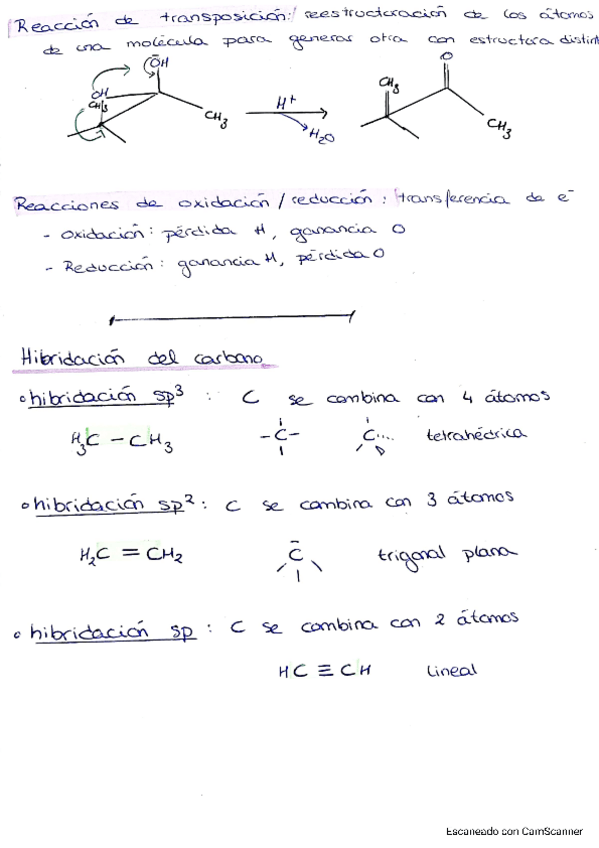 Reacción de transposición: reestructuración de los átomos
de una molécula para generar otra con estructura distint
OH
OH
CH3
CH3
H+
H2O
CH3
O
CH3
Reacciones de oxidación / reducción: transferencia de e-
- Oxidación: pérdida H, ganancia O
- Reducción: ganancia H, pérdida O
Hibridación del carbono
• hibridación sp3 : C se combina con 4 átomos
H3C - CH3 -C- C tetrahédrica
• hibridación sp2 : C se combina con 3 átomos
H2C = CH2 C trigonal plana
• hibridación sp : C se combina con 2 átomos
HC ≡ CH lineal
Escaneado con CamScanner